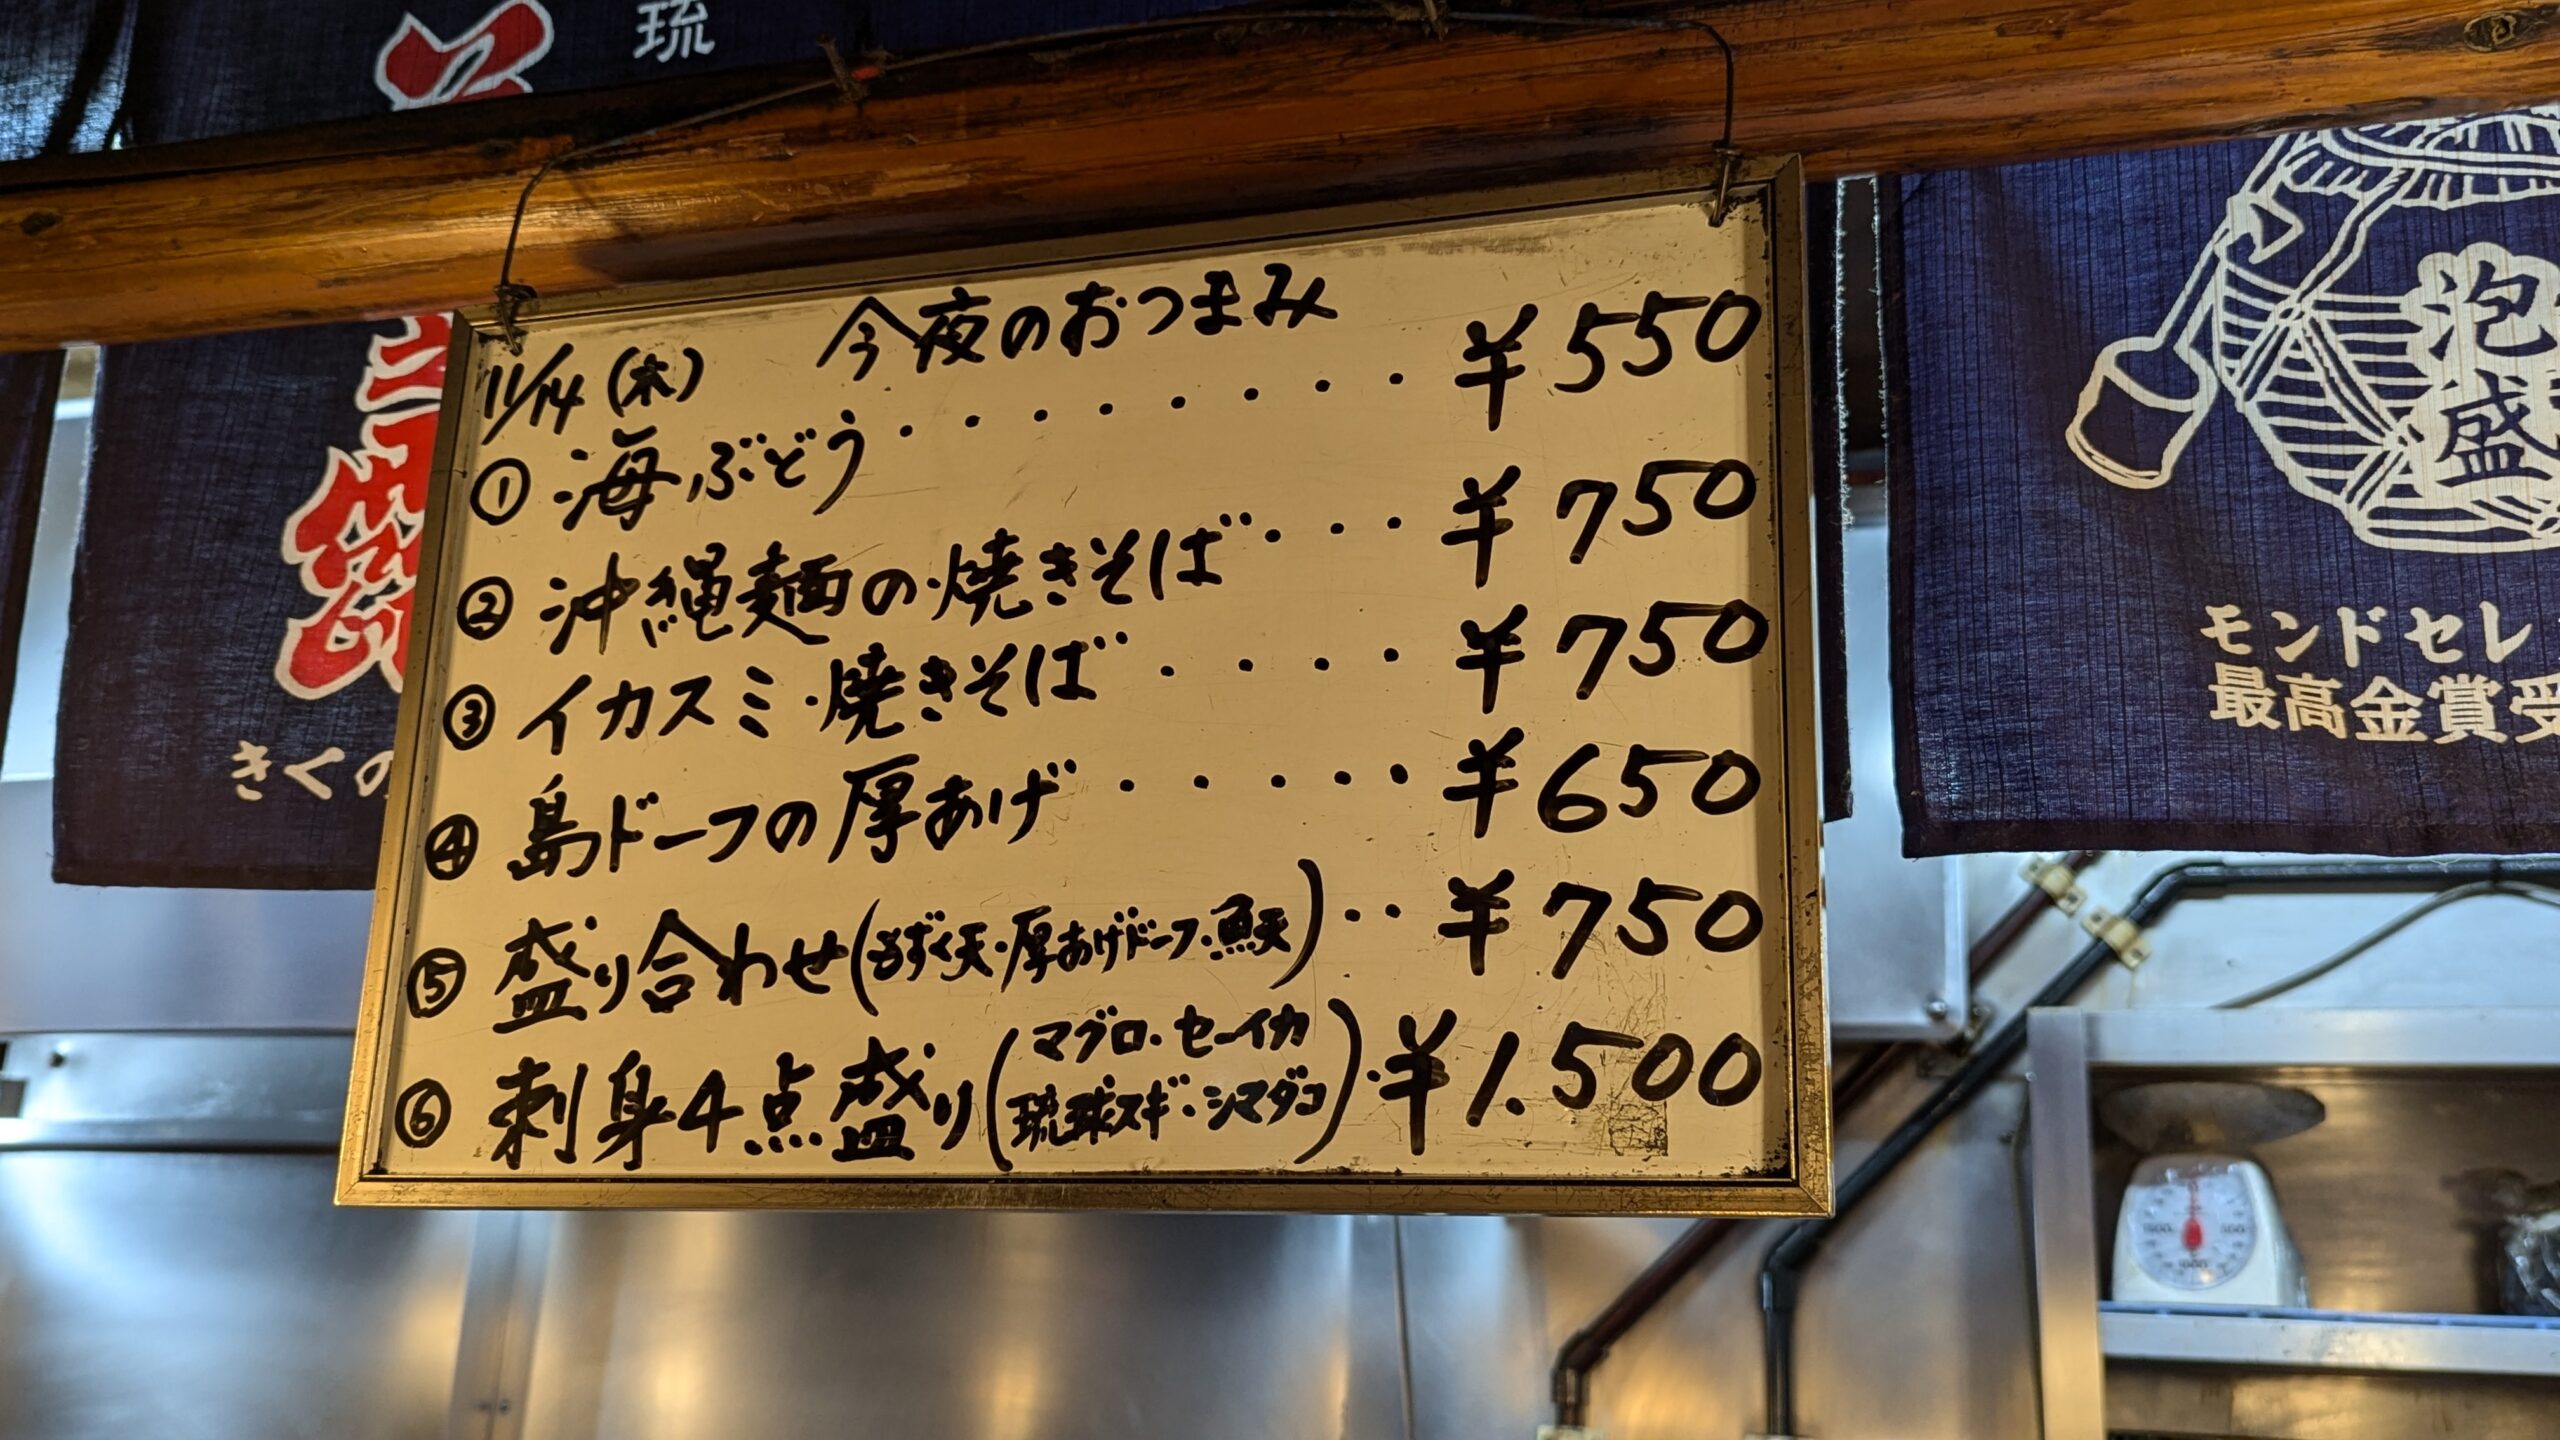 琉
11/14(木) 今夜のおつまみ
① 海ぶどう・・・・・・・・¥550
② 沖縄麺の焼きそば・・・¥750
③ イカスミ焼きそば・・・・¥750
④ 島ドーフの厚あげ・・・・・¥650
⑤ 盛り合わせ(もずく天・厚あげドーフ・魚天)・・¥750
⑥ 刺身4点盛り(マグロ・セーイカ
琉球スギ・シマダコ)・¥1.500
きくの
泡盛
モンドセレ
最高金賞受